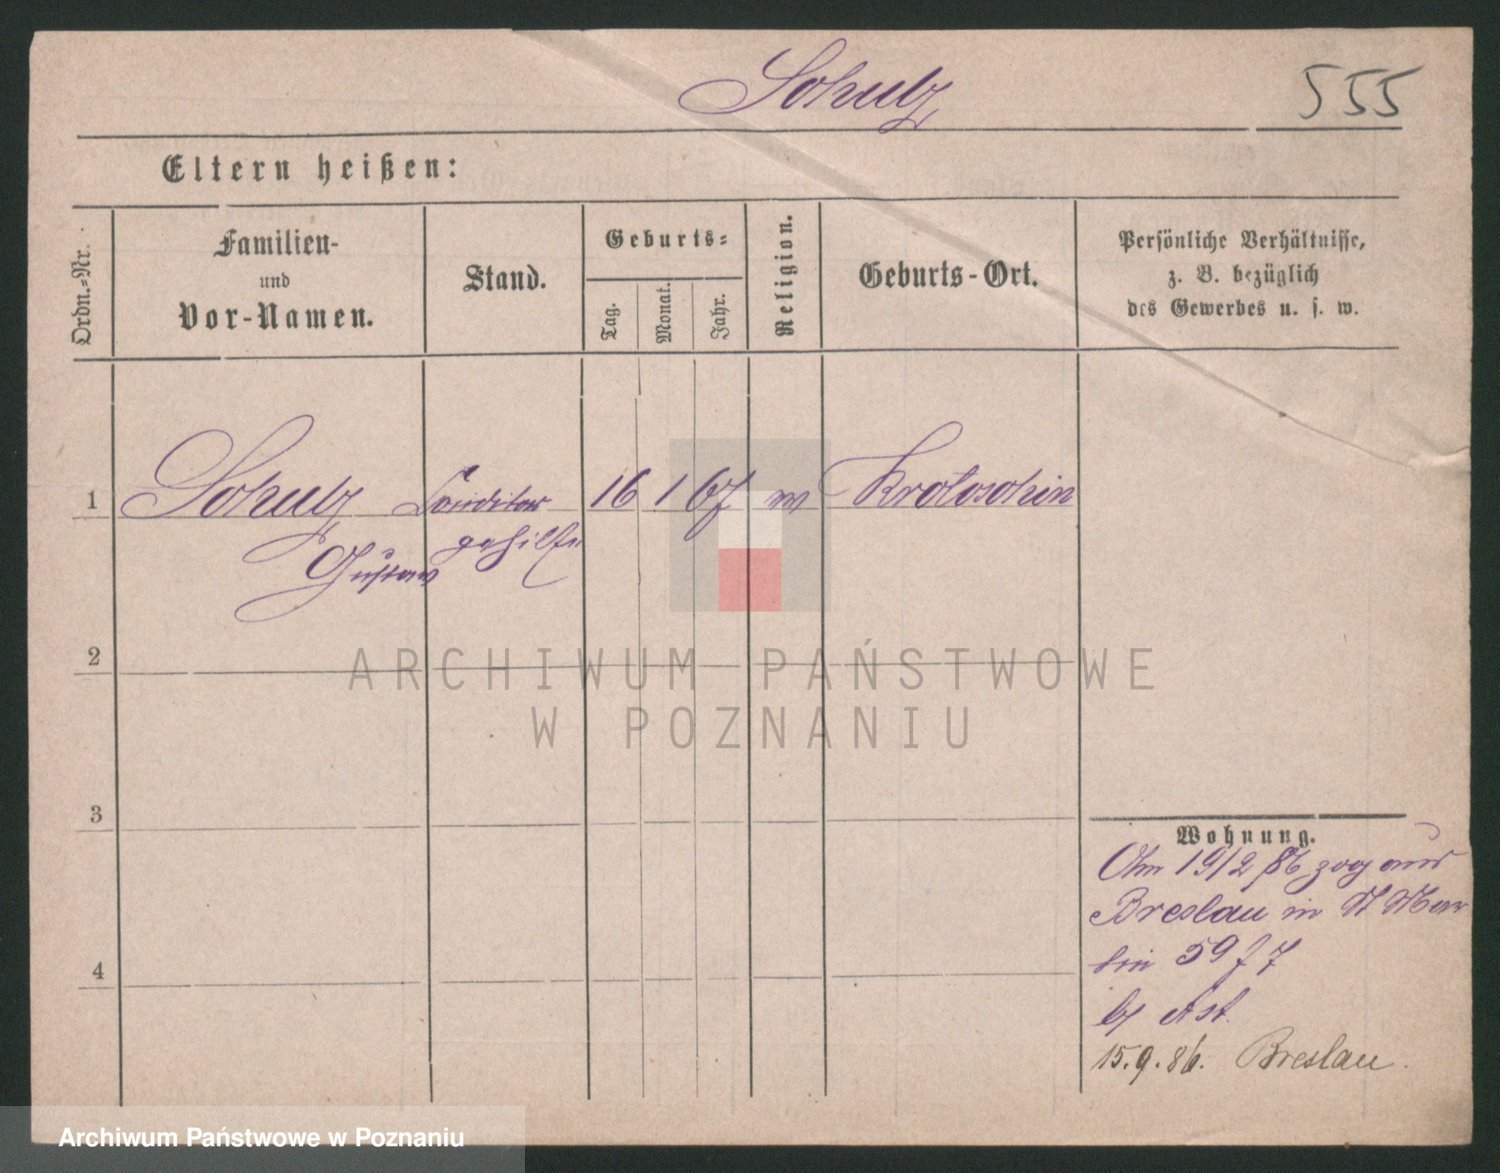 Schulz 555
Eltern heißen:
Ordn.-Nr.
Familien-
und
Vor-Namen.
Stand.
Geburts-
Tag.
Monat.
Jahr.
Religion.
Geburts-Ort.
Persönliche Verhältnisse,
z. B. bezüglich
des Gewerbes u. s. w.
1 Schulz Conditor 16 1 67 Krotoschin
Gustav gehilfe
2
3
4
Wohnung.
19/2 86 zog aus
Breslau in
59
15.9.86. Breslau.
ARCHIWUM PAŃSTWOWE
W POZNANIU
Archiwum Państwowe w Poznaniu